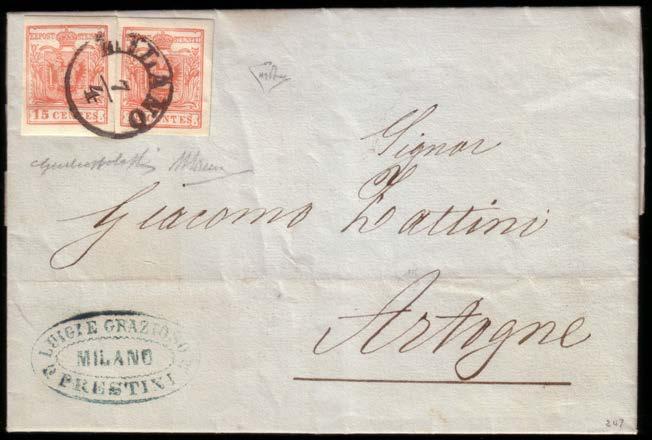 KKPOST-STEMPEL KKPOST-STEMPEL
15 CENTES. CENTES.
MILANO
7
4
Signor
Giacomo Zattini
Artogne
LUIGI E GRAZIOSO
MILANO
PRESTINI
247